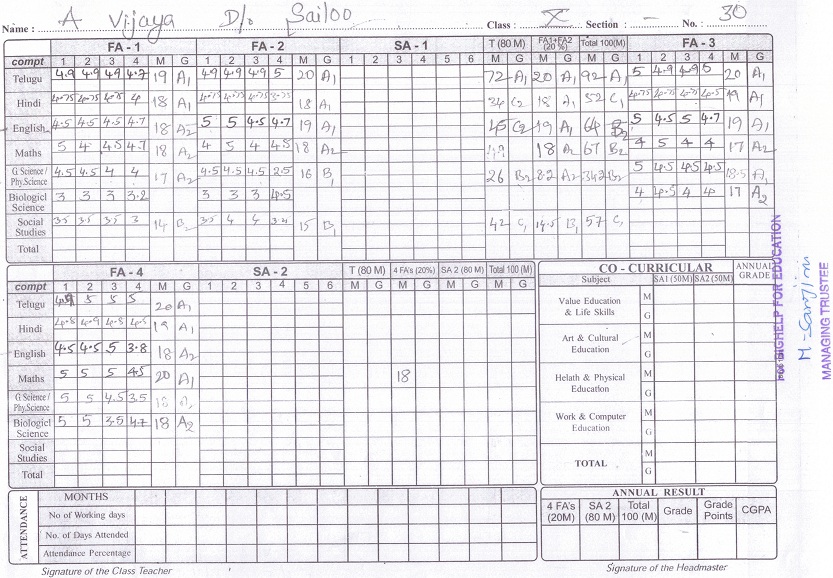 Name : A Vijaya D/o Sailoo Class : X Section : - No. : 30
FA - 1 FA - 2 SA - 1 T (80 M) FA1+FA2 (20 %) Total 100(M) FA - 3
compt 1 2 3 4 M G 1 2 3 4 M G 1 2 3 4 5 6 M G M G M G 1 2 3 4 M G
Telugu 4.9 4.9 4.9 4.7 19 A1 4.9 4.9 4.9 5 20 A1 72 A1 20 A1 92 A1 5 4.9 4.9 5 20 A1
Hindi 4.75 4.75 4.75 4 18 A1 4.75 4.75 4.75 3.75 18 A1 34 C2 18 A1 52 C1 4.75 4.75 4.75 4.5 19 A1
English 4.5 4.5 4.5 4.7 18 A2 5 5 4.5 4.7 19 A1 45 C2 19 A1 64 B2 5 4.5 5 4.7 19 A1
Maths 5 4 4.5 4.7 18 A2 4 5 4 4.5 18 A2 49 18 A2 67 B2 4 5 4 4 17 A2
G.Science / Phy.Science 4.5 4.5 4 4 17 A2 4.5 4.5 4.5 2.5 16 B1 26 B2 8.2 A2 34.2 B2 5 4.5 4.5 4.5 18.5 A1
Biologicl Science 3 3 3 3.2 3 3 3 4.5 4 4.5 4 4 17 A2
Social Studies 3.5 3.5 3.5 3 14 B1 3.5 4 4 3.4 15 B1 42 C1 14.5 B1 57 C1
Total
FA - 4 SA - 2 T (80 M) 4 FA's (20%) SA 2 (80 M) Total 100 (M)
compt 1 2 3 4 M G 1 2 3 4 5 6 M G M G M G M G
Telugu 4.9 5 5 5 20 A1
Hindi 4.8 4.9 4.8 4.5 19 A1
English 4.5 4.5 5 3.8 18 A2
Maths 5 5 5 4.5 20 A1 18
G.Science / Phy.Science 5 5 4.5 3.5 18
Biologicl Science 5 5 3.5 4.7 18 A2
Social Studies
Total
CO - CURRICULAR ANNUAL GRADE
Subject SA1 (50M) SA2 (50M)
Value Education & Life Skills M G
Art & Cultural Education M G
Helath & Physical Education M G
Work & Computer Education M G
TOTAL M G
ATTENDANCE
MONTHS
No of Working days
No. of Days Attended
Attendance Percentage
ANNUAL RESULT
4 FA's (20M) SA 2 (80 M) Total 100 (M) Grade Grade Points CGPA
Signature of the Class Teacher
Signature of the Headmaster
BIGHELP FOR EDUCATION
MANAGING TRUSTEE